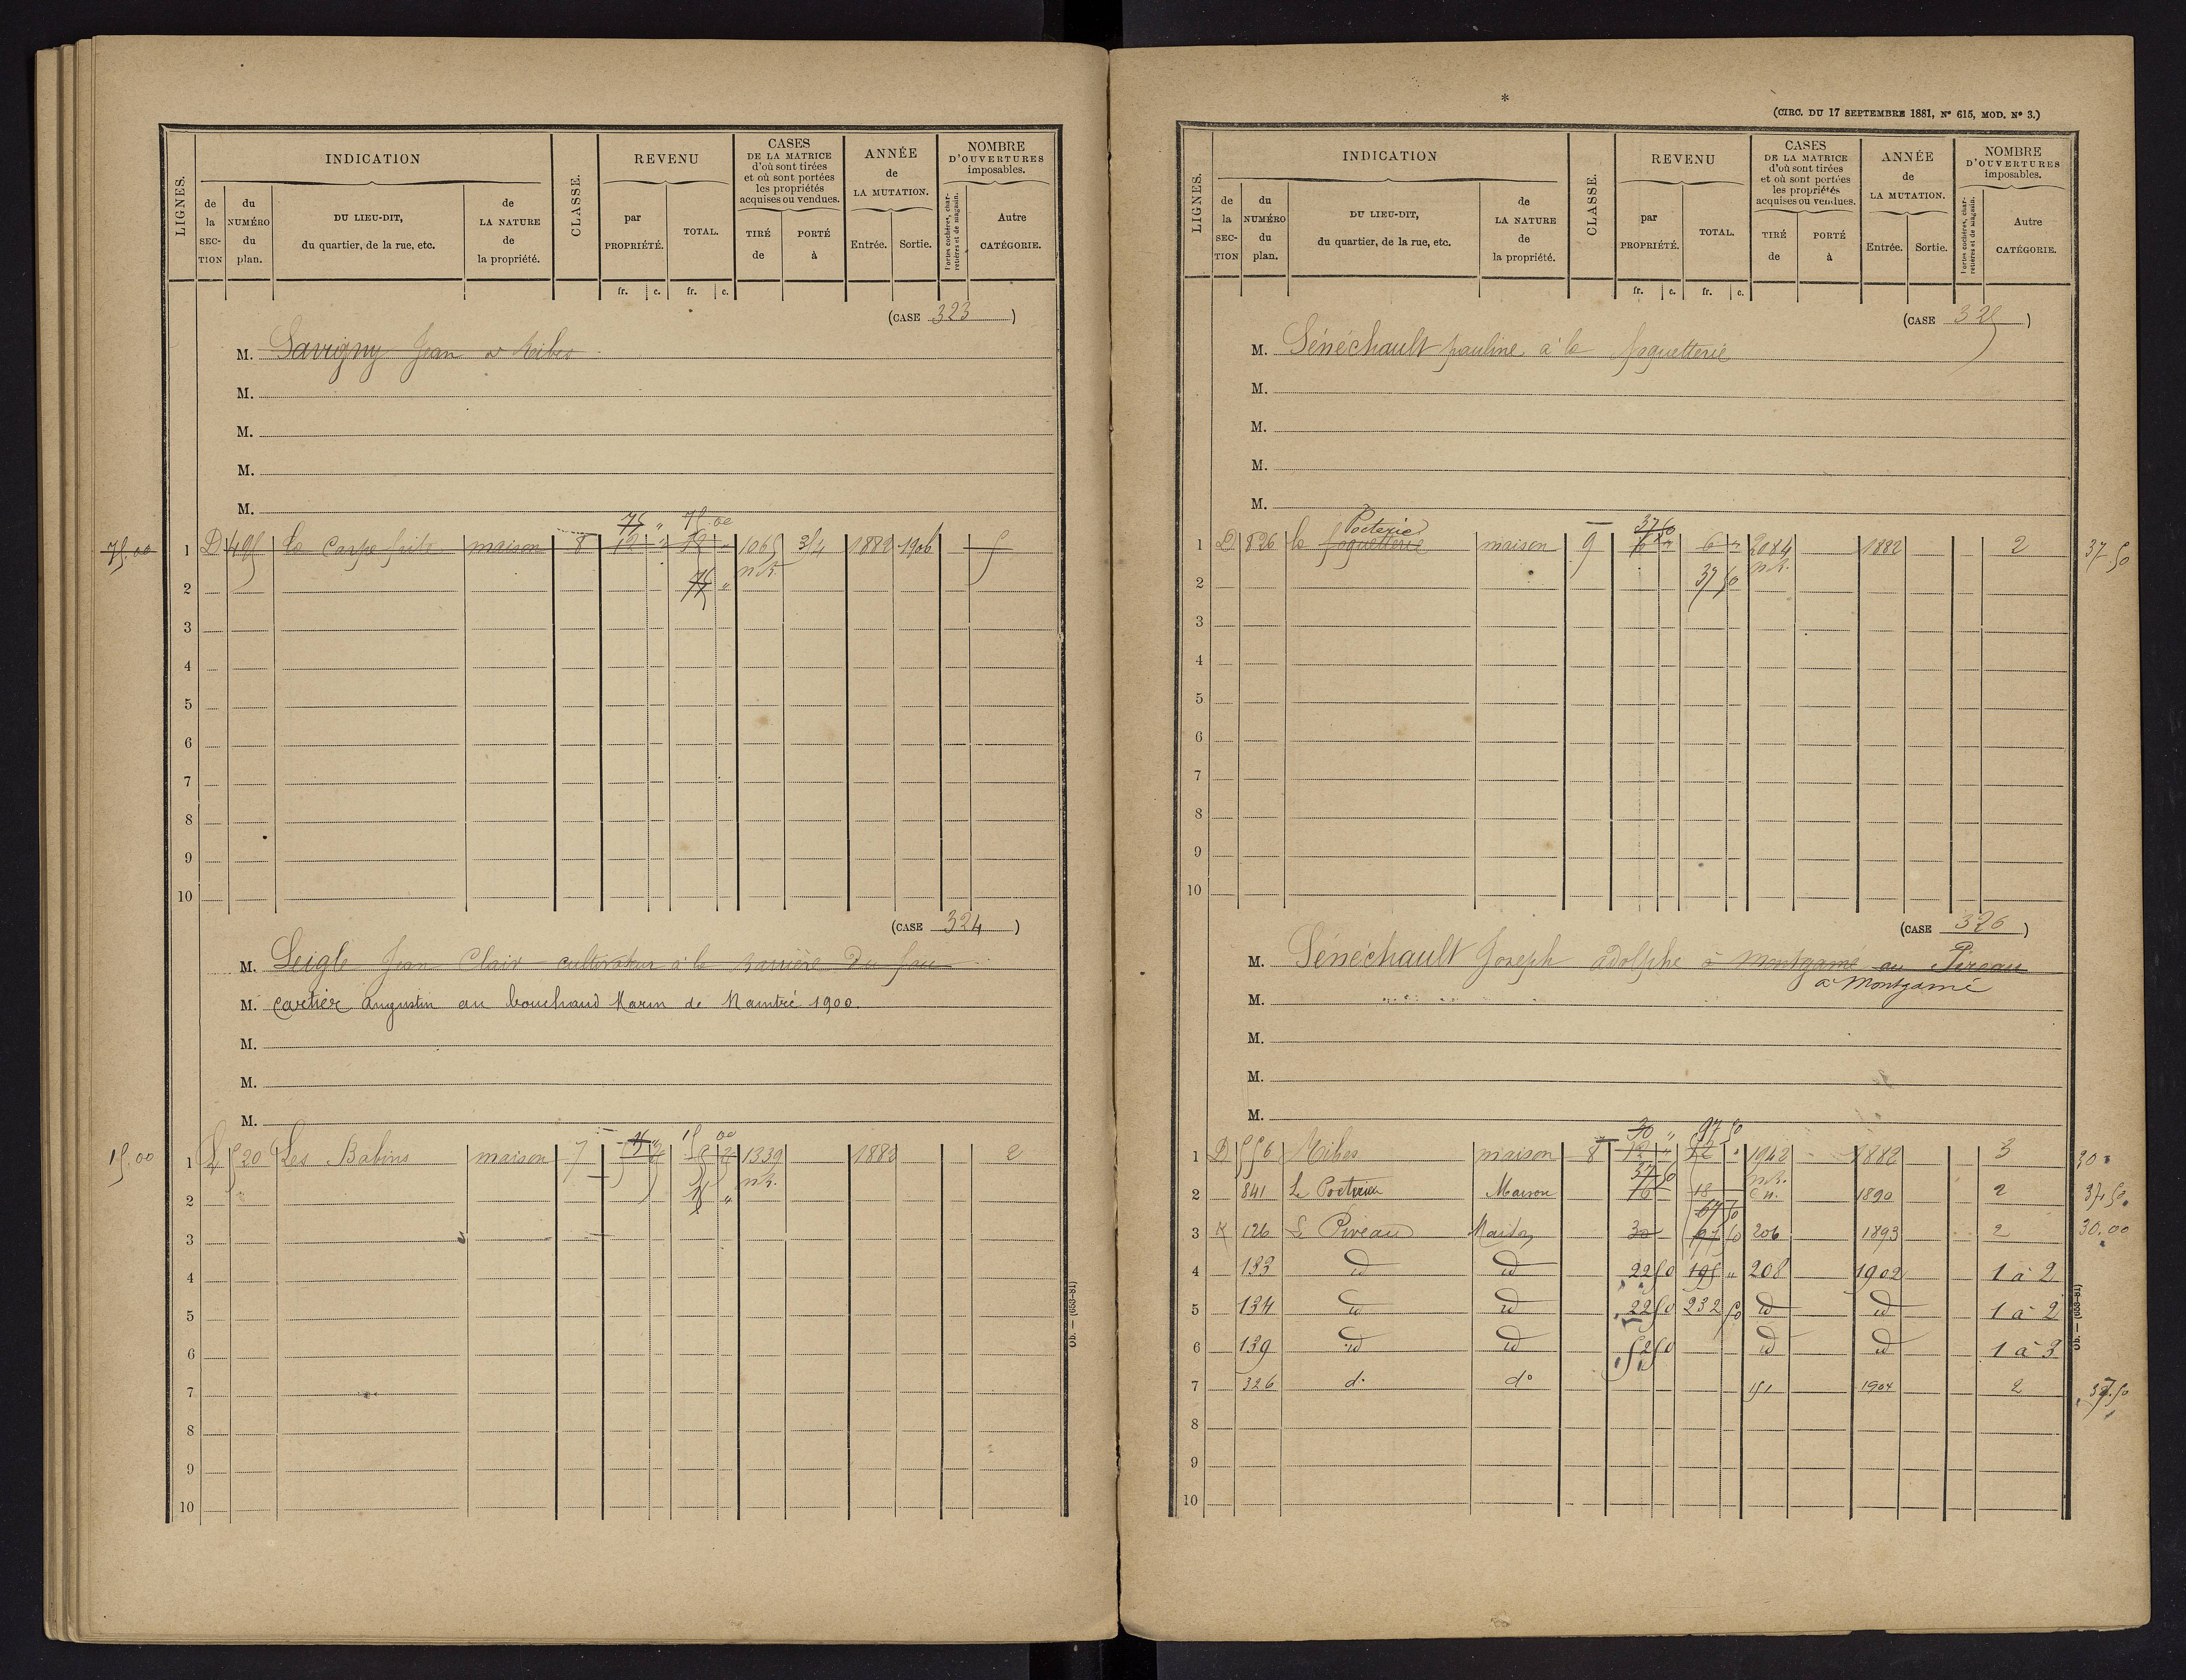 LIGNES.
INDICATION
de la SECTION
du NUMÉRO du plan.
DU LIEU-DIT, du quartier, de la rue, etc.
de LA NATURE de la propriété.
CLASSE.
REVENU
par PROPRIÉTÉ.
TOTAL.
CASES DE LA MATRICE d'où sont tirées et où sont portées les propriétés acquises ou vendues.
TIRÉ de
PORTÉ à
ANNÉE de LA MUTATION.
Entrée.
Sortie.
NOMBRE D'OUVERTURES imposables.
Portes cochères, charretières et de magasin.
Autre CATÉGORIE.
fr. c. fr. c.
(CASE 323)
M. Savigny Jean à Ribes
M.
M.
M.
M.
75 " 75 00
75.00 1 D 495 maison 8 12 " 12 " 1065 314 1882 1906 5
2 75 " n.c.
3
4
5
6
7
8
9
10
(CASE 324)
M. Seigle Jean Clair cultivateur à la Barrière du fau
M. Cartier Augustin au bouchaud Marin de Naintré 1900.
M.
M.
M.
15 " 15 00
15.00 1 520 Les Babins maison 7 1339 1882 2
2 15 " n.c.
3
4
5
6
7
8
9
10
Ob. — (653-81)
*
(CIRC. DU 17 SEPTEMBRE 1881, N° 615, MOD. N° 3.)
LIGNES.
INDICATION
de la SECTION
du NUMÉRO du plan.
DU LIEU-DIT, du quartier, de la rue, etc.
de LA NATURE de la propriété.
CLASSE.
REVENU
par PROPRIÉTÉ.
TOTAL.
CASES DE LA MATRICE d'où sont tirées et où sont portées les propriétés acquises ou vendues.
TIRÉ de
PORTÉ à
ANNÉE de LA MUTATION.
Entrée.
Sortie.
NOMBRE D'OUVERTURES imposables.
Portes cochères, charretières et de magasin.
Autre CATÉGORIE.
fr. c. fr. c.
(CASE 325)
M. Sénéchault pauline à la
M.
M.
M.
M.
Poeterie 37 50
1 D 826 la maison 9 6 " 6 " 2084 1882 2 37 50
2 37 50 n.c.
3
4
5
6
7
8
9
10
(CASE 326)
M. Senéchault Joseph adolphe à Montgamé au Pireau
à Montgamé
M.
M.
M.
M.
30 " 97 50
1 D 556 Ribes maison 8 12 " 12 " 1942 1882 3 30 "
37 50 n.c.
2 841 La Maison 16 18 C.n. 1890 2 37,50
67 50
3 K 126 Le Piveau Maison 30 97 50 206 1893 2 30.00
4 133 id id 22 50 195 " 208 1902 1 à 2
5 134 id id 22 50 232 50 id id 1 à 2
6 139 id id 52 50 id id 1 à 3
7 326 d° d° 151 1904 2 37.50
8
9
10
Ob. — (653-81)